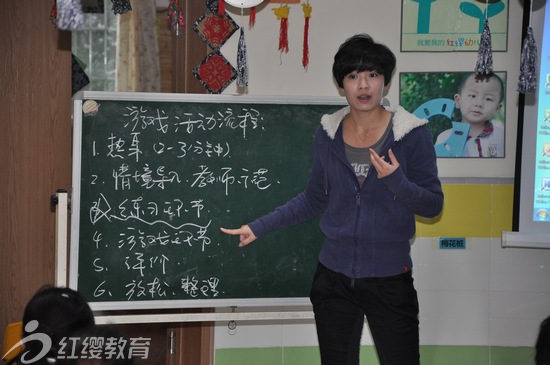 我爱我的红缨幼儿
游戏活动流程
1. 热身 (2-3分钟)
2. 情境导入 教师示范
练习环节
4. 游戏环节
5. 评价
6. 放松、整理
梅花桩
红缨教育